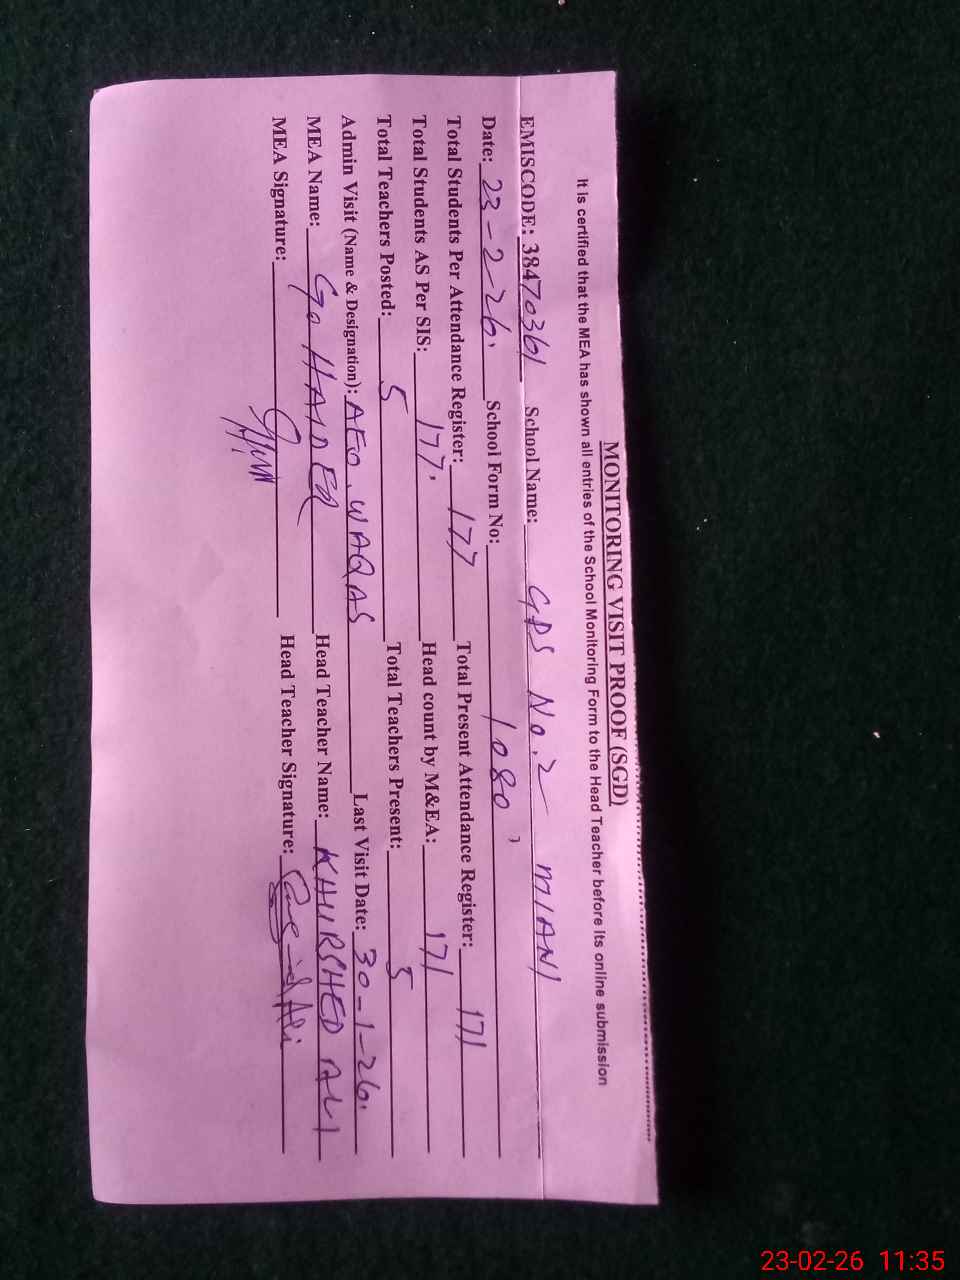 MONITORING VISIT PROOF (SGD)
It is certified that the MEA has shown all entries of the School Monitoring Form to the Head Teacher before its online submission
EMISCODE: 38470361 School Name: GPS No. 2 MIANI
Date: 23-2-26. School Form No: 1080
Total Students Per Attendance Register: 177 Total Present Attendance Register: 171
Total Students AS Per SIS: 177. Head count by M&EA: 171
Total Teachers Posted: 5 Total Teachers Present: 5
Admin Visit (Name & Designation): AEO. WAQAS Last Visit Date: 30-1-26.
MEA Name: HAIDER Head Teacher Name: KHURSHED ALI
MEA Signature: Head Teacher Signature: Ali
23-02-26 11:35